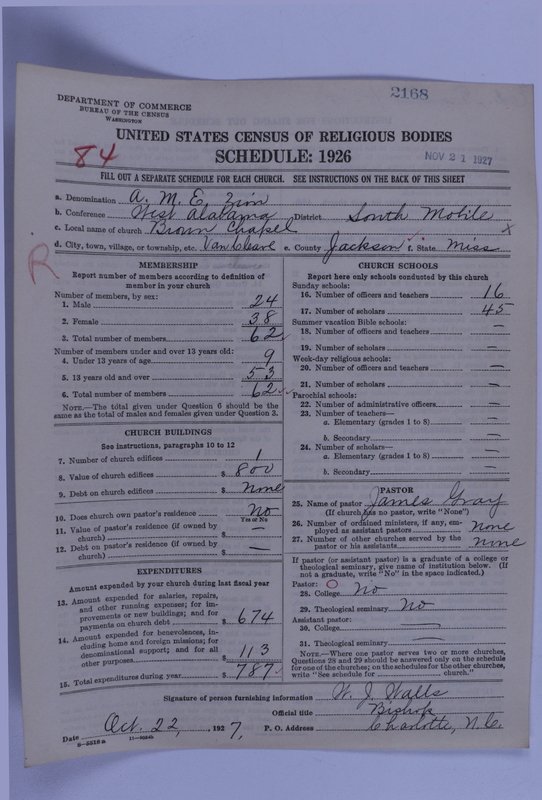 2168
DEPARTMENT OF COMMERCE
BUREAU OF THE CENSUS
WASHINGTON
UNITED STATES CENSUS OF RELIGIOUS BODIES
84
SCHEDULE: 1926
NOV 21 1927
FILL OUT A SEPARATE SCHEDULE FOR EACH CHURCH. SEE INSTRUCTIONS ON THE BACK OF THIS SHEET
a. Denomination A. M. E. Zion
b. Conference West Alabama District South Mobile
c. Local name of church Brown Chapel x
d. City, town, village, or township, etc. Van Cleave e. County Jackson f. State Miss
R
MEMBERSHIP
Report number of members according to definition of
member in your church
Number of members, by sex:
1. Male 24
2. Female 38
3. Total number of members 62
Number of members under and over 13 years old:
4. Under 13 years of age 9
5. 13 years old and over 53
6. Total number of members 62
NOTE.—The total given under Question 6 should be the
same as the total of males and females given under Question 3.
CHURCH BUILDINGS
See instructions, paragraphs 10 to 12
7. Number of church edifices 1
8. Value of church edifices $ 800
9. Debt on church edifices $ none
10. Does church own pastor's residence No
Yes or No
11. Value of pastor's residence (if owned by
church) $ —
12. Debt on pastor's residence (if owned by
church) $ —
EXPENDITURES
Amount expended by your church during last fiscal year
13. Amount expended for salaries, repairs,
and other running expenses; for im-
provements or new buildings; and for
payments on church debt $ 674
14. Amount expended for benevolences, in-
cluding home and foreign missions; for
denominational support; and for all
other purposes 113
15. Total expenditures during year $ 787
CHURCH SCHOOLS
Report here only schools conducted by this church
Sunday schools:
16. Number of officers and teachers 16
17. Number of scholars 45
Summer vacation Bible schools:
18. Number of officers and teachers —
19. Number of scholars —
Week-day religious schools:
20. Number of officers and teachers —
21. Number of scholars —
Parochial schools:
22. Number of administrative officers —
23. Number of teachers—
a. Elementary (grades 1 to 8) —
b. Secondary —
24. Number of scholars—
a. Elementary (grades 1 to 8) —
b. Secondary —
PASTOR
25. Name of pastor James Gray
(If church has no pastor, write "None")
26. Number of ordained ministers, if any, em-
ployed as assistant pastors none
27. Number of other churches served by the
pastor or his assistants none
If pastor (or assistant pastor) is a graduate of a college or
theological seminary, give name of institution below. (If
not a graduate, write "No" in the space indicated.)
Pastor: O
28. College No
29. Theological seminary No
Assistant pastor:
30. College —
31. Theological seminary —
NOTE.—Where one pastor serves two or more churches,
Questions 28 and 29 should be answered only on the schedule
for one of the churches; on the schedules for the other churches,
write "See schedule for church."
Signature of person furnishing information W. J. Walls
Official title Bishop
Date Oct. 22, 1927, P. O. Address Charlotte, N. C.